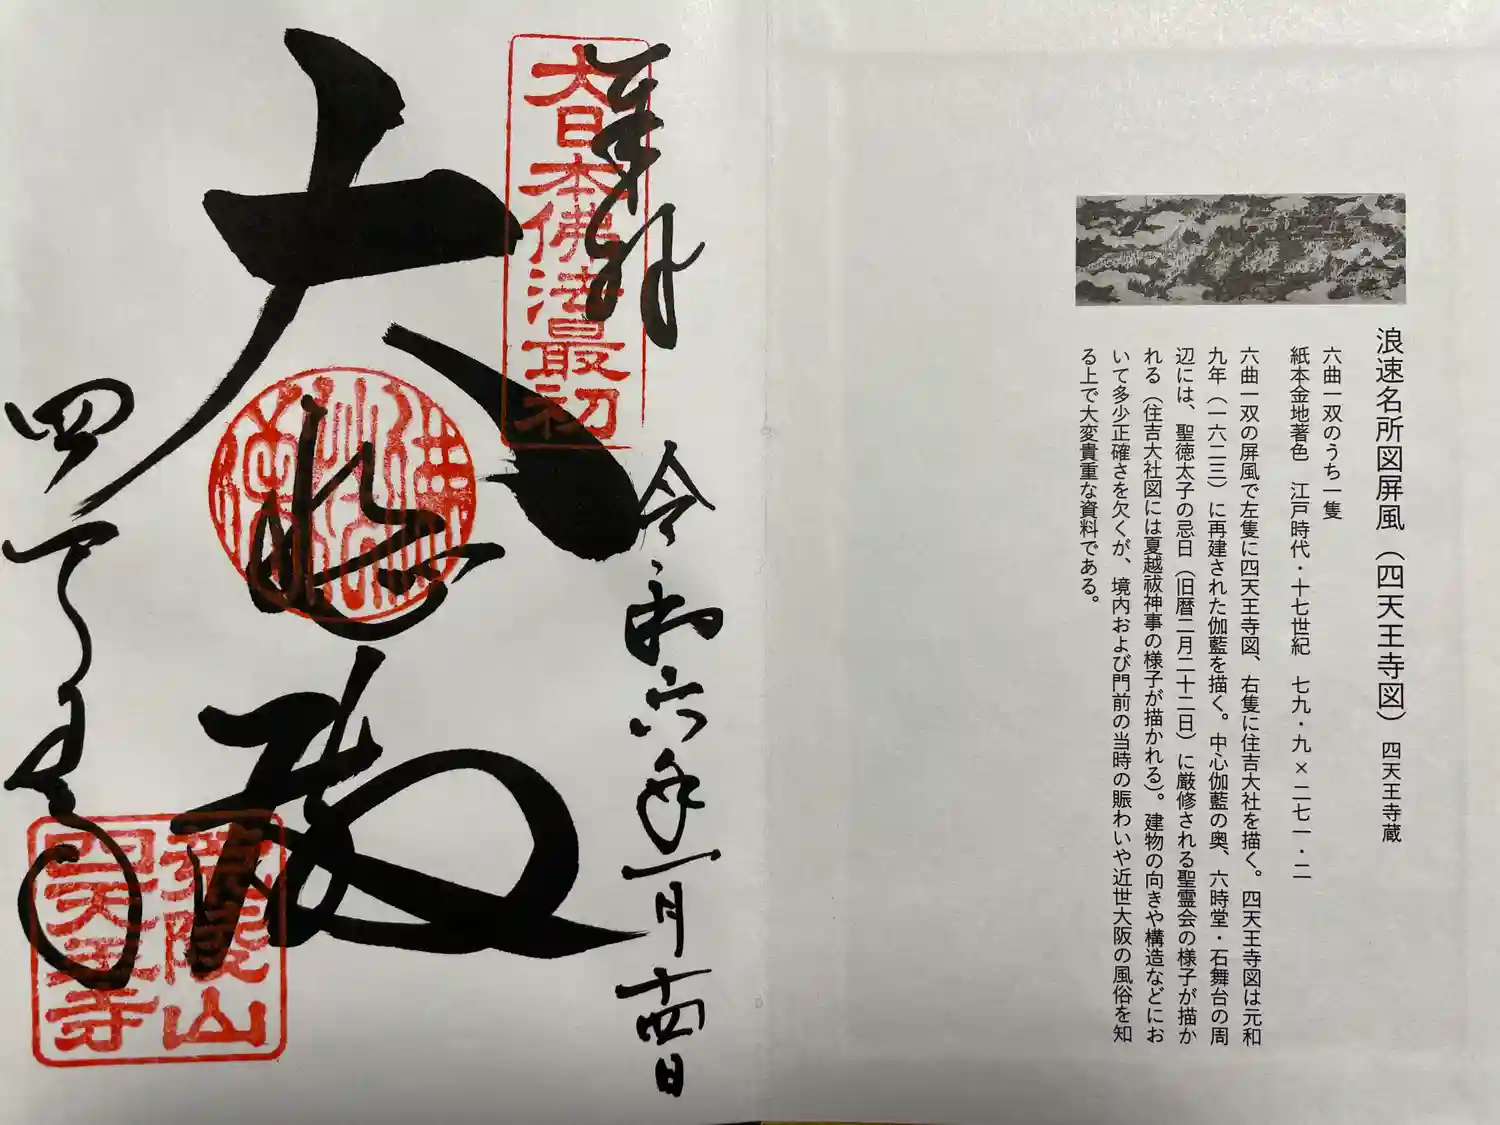 浪速名所図屏風（四天王寺図）　四天王寺蔵
六曲一双のうち一隻
紙本金地著色　江戸時代・十七世紀　七九・九×二七一・二
六曲一双の屏風で左隻に四天王寺図、右隻に住吉大社を描く。四天王寺図は元和
九年（一六二三）に再建された伽藍を描く。中心伽藍の奥、六時堂・石舞台の周
辺には、聖徳太子の忌日（旧暦二月二十二日）に厳修される聖霊会の様子が描か
れる（住吉大社図には夏越祓神事の様子が描かれる）。建物の向きや構造などにお
いて多少正確さを欠くが、境内および門前の当時の賑わいや近世大阪の風俗を知
る上で大変貴重な資料である。
奉拝
令和六年一月十四日
大日本佛法最初
大悲殿
四天王寺
荒陵山
四天王寺